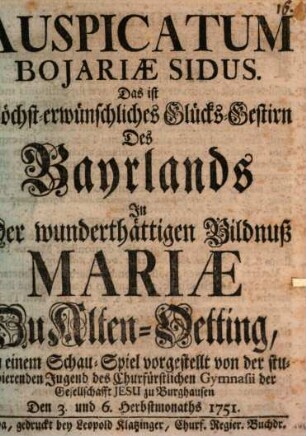 16.
AUSPICATUM
BOJARIÆ SIDUS.
Das ist
öchst-erwünschliches Glücks-Gestirn
Des
Bayrlands
In
der wunderthättigen Bildnuß
MARIÆ
Zu Alten-Oetting,
n einem Schau-Spiel vorgestellt von der stu-
dierenden Jugend des Churfürstlichen Gymnasii der
Gesellschafft JESU zu Burghausen
Den 3. und 6. Herbstmonaths 1751.
gedruckt bey Leopold Klatzinger, Churf. Regier. Buchdr.